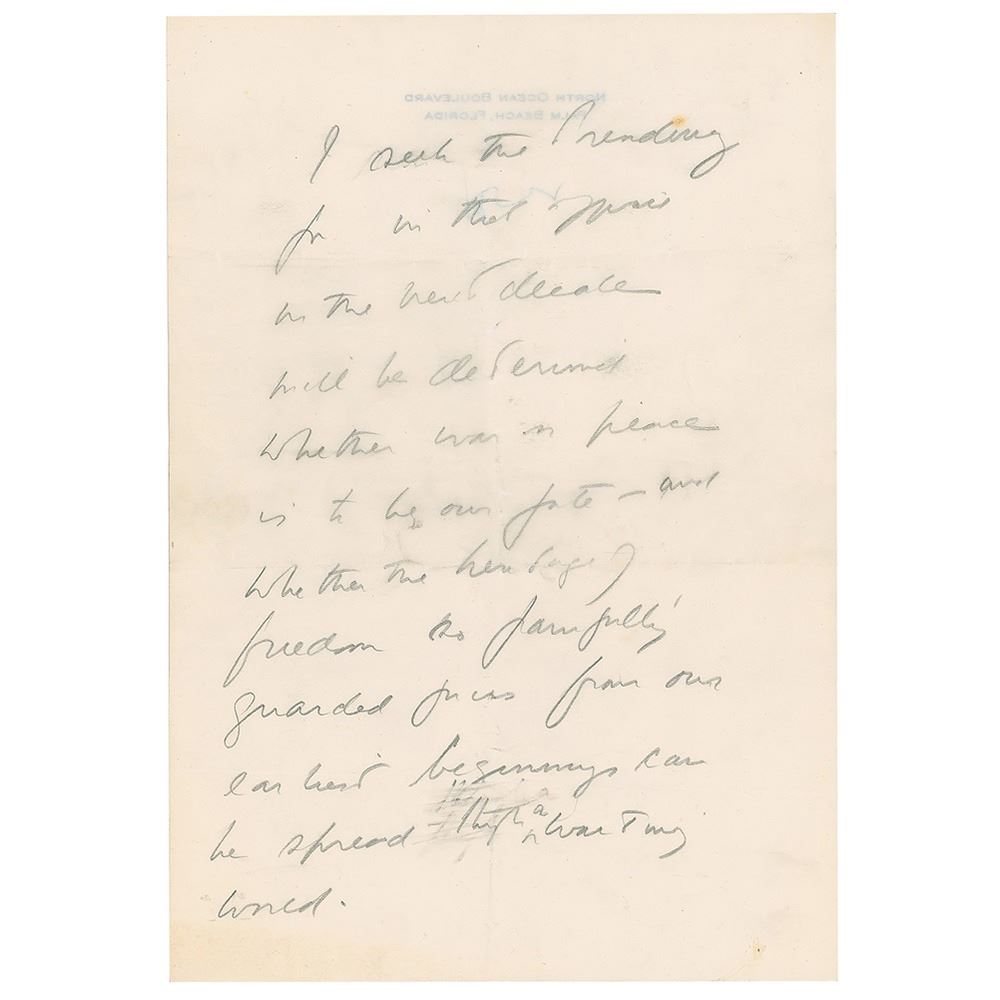 NORTH OCEAN BOULEVARD
PALM BEACH, FLORIDA
I seek the Presidency
for in that office
in the next decade
will be determined
whether war or peace
is to be our fate – and
whether the heritage of
freedom so painfully
guarded from our
earliest beginnings can
be spread through a waiting
world.